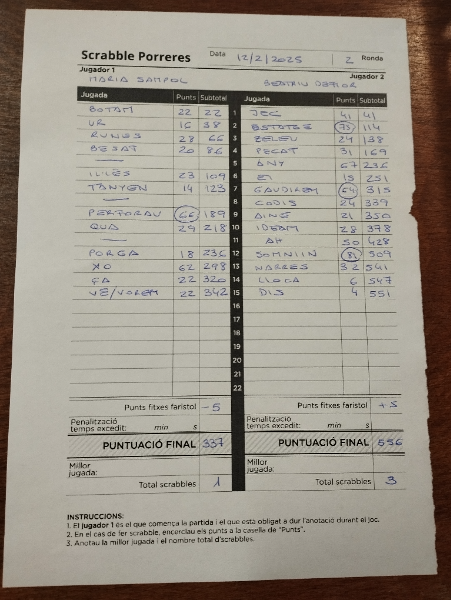 Scrabble Porreres Data 12/2/2025 2 Ronda
Jugador 1 Jugador 2
MARIA SAMPOL
Jugada Punts Subtotal Jugada Punts Subtotal
BOTAM 22 22 1 JEC 41 41
UR 16 38 2 73 114
RUNES 28 66 3 ZELEU 24 138
BESAT 20 86 4 PECAT 31 169
— 5 ANY 67 236
ILLES 23 109 6 EI 15 251
TANYEN 14 123 7 GAUDIREM 64 315
— 8 CODIS 24 339
PERFORAU 66 189 9 AINE 21 350
QUA 29 218 10 IDEAM 28 378
— 11 AH 50 428
PORGA 18 236 12 SOMNIIN 81 509
XO 62 298 13 NARRES 32 541
22 320 14 LLOCA 6 547
VE/VOREM 22 342 15 DIS 4 551
16
17
18
19
20
21
22
Punts fitxes faristol -5 Punts fitxes faristol +5
Penalització temps excedit: min s Penalització temps excedit: min s
PUNTUACIÓ FINAL 337 PUNTUACIÓ FINAL 556
Millor jugada: Millor jugada:
Total scrabbles 1 Total scrabbles 3
INSTRUCCIONS:
1. El jugador 1 és el que comença la partida i el que està obligat a dur l'anotació durant el joc.
2. En el cas de fer scrabble, encerclau els punts a la casella de "Punts".
3. Anotau la millor jugada i el nombre total d'scrabbles.